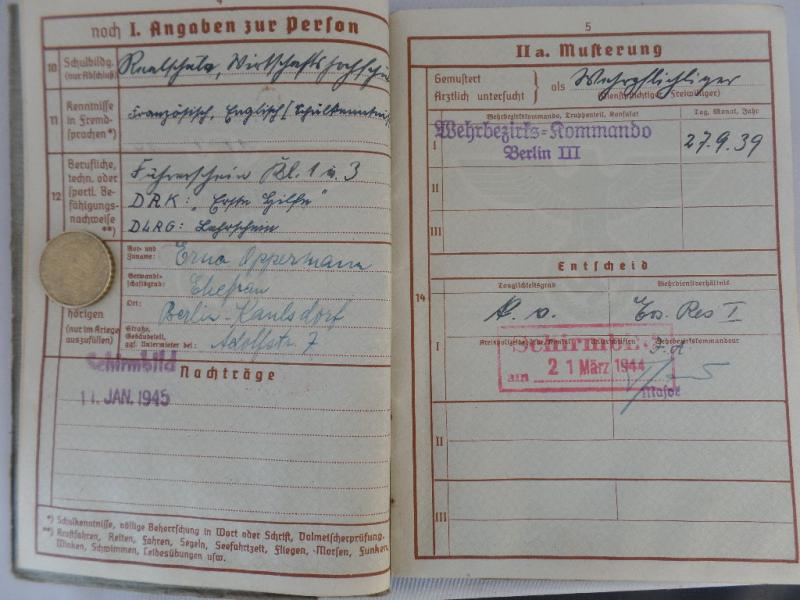 4
noch I. Angaben zur Person
10 Schulbildg. (nur Abschluß)
Realschule, Wirtschaftshochschule
11 Kenntnisse in Fremdsprachen *)
Französisch, Englisch (Schulkenntnisse
12 Berufliche, techn. oder sportl. Befähigungsnachweise **)
Führerschein Kl. 1 u. 3
DRK: „Erste Hilfe"
DLRG: Lehrschein
hörigen
(nur im Kriege auszufüllen)
Vor- und Zuname:
Erna Oppermann
Verwandtschaftsgrad:
Ehefrau
Ort:
Berlin-Kaulsdorf
Straße, Gebäudeteil, ggf. Untermieter bei:
Adolfstr. 7
Schirmbild
11. JAN. 1945
Nachträge
*) Schulkenntnisse, völlige Beherrschung in Wort oder Schrift, Dolmetscherprüfung.
**) Kraftfahren, Reiten, Fahren, Segeln, Seefahrtzeit, Fliegen, Morsen, Funken,
Winken, Schwimmen, Leibesübungen usw.
5
II a. Musterung
Gemustert
Ärztlich untersucht
als Wehrpflichtiger
(Dienstpflichtiger, Freiwilliger)
Wehrbezirkskommando, Truppenteil, Konsulat
Tag, Monat, Jahr
I
Wehrbezirks-Kommando
Berlin III
27.9.39
II
III
Entscheid
Tauglichkeitsgrad
Wehrdienstverhältnis
14
k. v.
Ers. Res I
I
Wehrbezirkskommandeur
Schirmb.
am 21 März 1944
Major
II
III